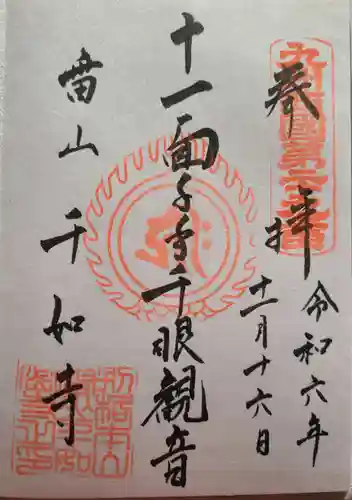 奉拝
令和六年
十一月十六日
十一面千手千眼観音
雷山
千如寺